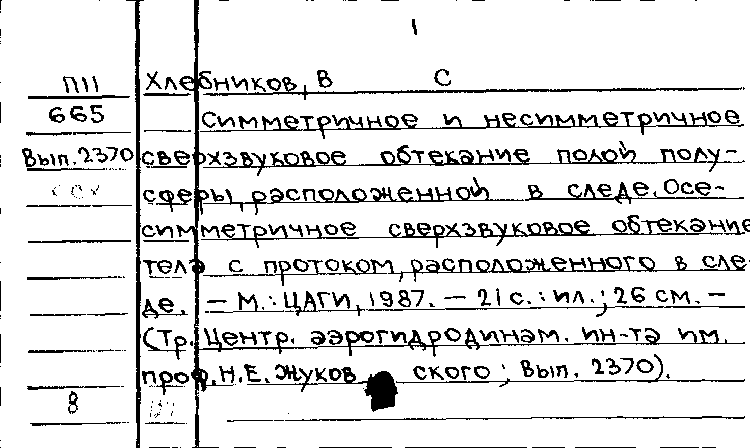 1
П11 Хлебников, В С
665 Симметричное и несимметричное
Вып.2370 сверхзвуковое обтекание полой полу-
сферы, расположенной в следе. Осе-
симметричное сверхзвуковое обтекание
тела с протоком, расположенного в сле-
де. — М.: ЦАГИ, 1987. — 21 с. : ил.; 26 см. —
(Тр. Центр. аэрогидродинам. ин-та им.
проф. Н.Е. Жуковского; Вып. 2370).
8